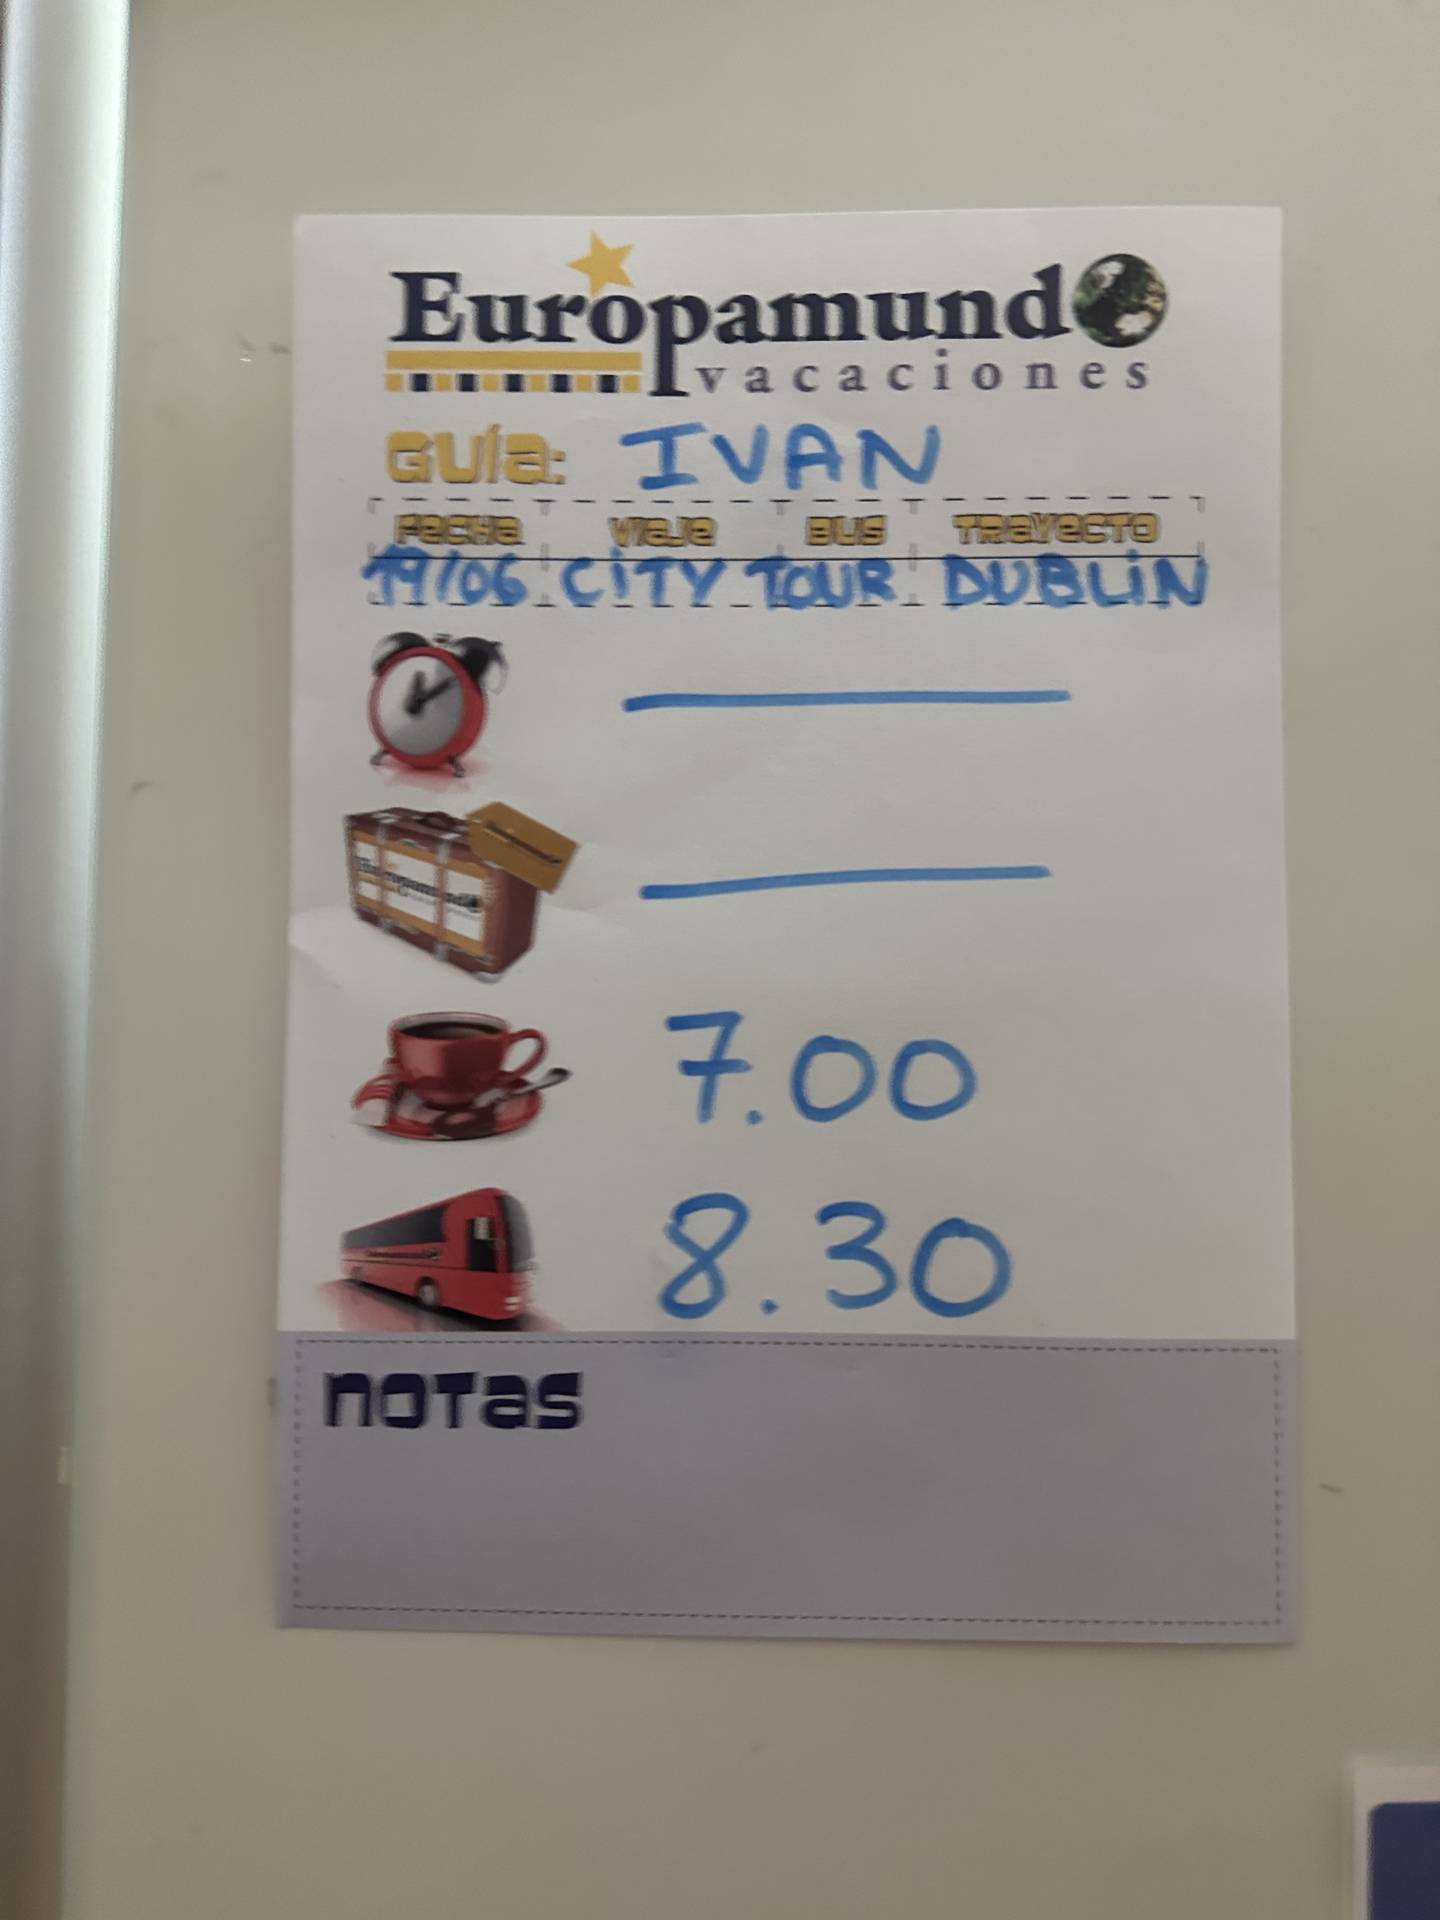 Europamundo
vacaciones
GUÍA: IVAN
FECHA VIAJE BUS TRAYECTO
19/06 CITY TOUR DUBLIN
Europamundo
7.00
8.30
NOTAS